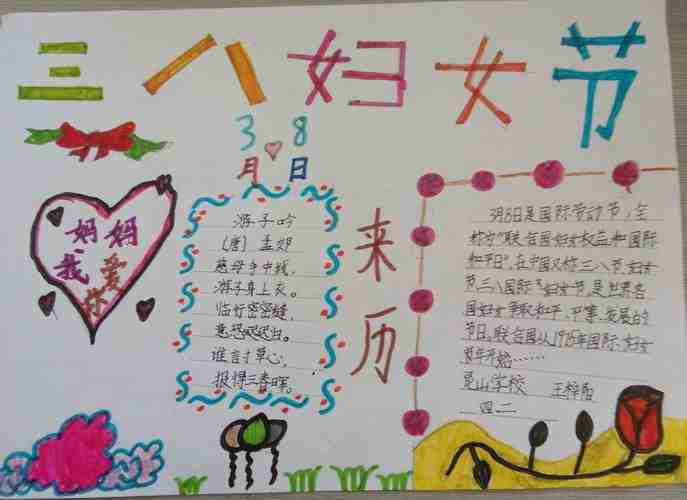 三八妇女节
3月8日
妈妈
我爱你
游子吟
(唐) 孟郊
慈母手中线,
游子身上衣。
临行密密缝,
意恐迟迟归。
谁言寸草心,
报得三春晖。
来历
3月8日是国际劳动节,全
称为"联合国妇女权益和国际
和平日",在中国又称三八节、妇女
节、三八国际妇女节,是世界各
国妇女争取和平、平等、发展的
节日。联合国从1975年国际妇女
年开始……
昆山学校 王梓
四二